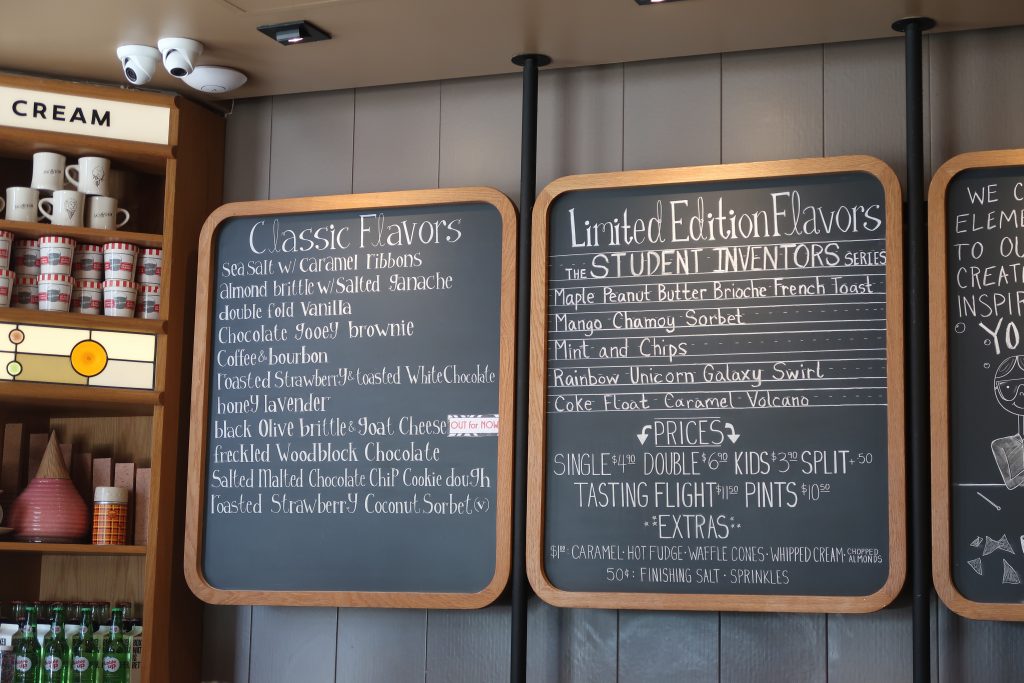 CREAM
Classic Flavors
sea salt w/ caramel ribbons
almond brittle w/ salted ganache
double fold vanilla
Chocolate gooey brownie
Coffee & bourbon
roasted Strawberry & toasted White Chocolate
honey lavender
black Olive brittle & goat Cheese OUT for NOW
freckled Woodblock Chocolate
Salted Malted Chocolate Chip Cookie dough
roasted Strawberry Coconut Sorbet (v)
Limited Edition Flavors
THE STUDENT INVENTORS SERIES
Maple Peanut Butter Brioche French Toast
Mango Chamoy Sorbet
Mint and Chips
Rainbow Unicorn Galaxy Swirl
Coke Float Caramel Volcano
PRICES
SINGLE $4.90 DOUBLE $6.90 KIDS $3.90 SPLIT +.50
TASTING FLIGHT $11.50 PINTS $10.50
**EXTRAS**
$1.00: CARAMEL · HOT FUDGE · WAFFLE CONES · WHIPPED CREAM · CHOPPED ALMONDS
50¢: FINISHING SALT · SPRINKLES
WE C
ELEME
TO OU
CREATI
INSPIR
YO